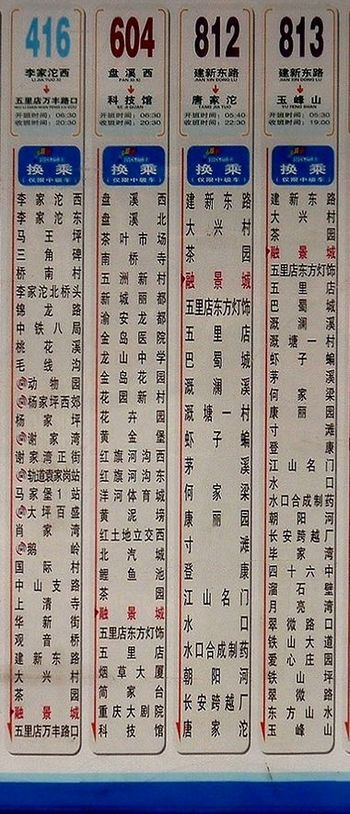 416
李家沱西
五里店万丰路口
开班时间：06:30
收班时间：20:30
换乘
(仅限中级车)
李家沱西
李家沱东
马王坪
三角碑
桥南村
李家沱北桥头
锦龙路
中铁八局
桃花溪
毛线沟
动物园
杨家坪西郊
杨家坪
谢家湾
谢家湾正街
轨道袁家岗站
马家堡1站
大坪百盛
肖家湾
鹅岭
国际村
中山支路
上清寺
华新街
观音桥
建新东路
大兴村
茶园
融景城
五里店万丰路口
604
盘溪西
科技馆
开班时间：06:30
收班时间：20:30
换乘
(仅限中级车)
盘溪西
盘溪北
茶叶市场
南桥寺
五洲新村
新城丽都
渝安龙都
金岛医院
龙山中学
金岛花园
花园新村
花卉园
黄金堡
红旗河沟西
红旗河沟东
洋河体育城
黄泥塝
红土地立交西
北汽城
鲤鱼池
茶园
融景城
五里店东方灯饰
五里店
烟草大厦
简家台
重庆大剧院
科技馆
812
建新东路
JIAN XIN DONG LU
唐家沱
TANG JIA TUO
开班时间：05:40
收班时间：22:30
换乘
(仅限中级车)
建新东路
大兴村
茶园
融景城
五里店东方灯饰
五里店
巴蜀城
溉澜溪
溉塘一村
虾子蝙
茅溪
何家梁
康丽园
寸滩
登康
江山名门
水口
水口合成制药
朝阳河
长安跨越厂
唐家沱
813
建新东路
JIAN XIN DONG LU
玉峰山
YU FENG SHAN
开班时间：05:30
收班时间：19:00
换乘
(仅限中级车)
建新东路
大兴村
茶园
融景城
五里店东方灯饰
五里店
巴蜀城
溉澜溪
溉塘一村
虾子蝙
茅溪
何家梁
康丽园
寸滩
登康
江山名门
水口
水口合成制药
朝阳河
长安跨越厂
毕家湾
四十六中
溜石壁
月亮湾
翠微路口
铁山大道
爱心庄园
铁山坪
翠微路
东方山水
玉峰山